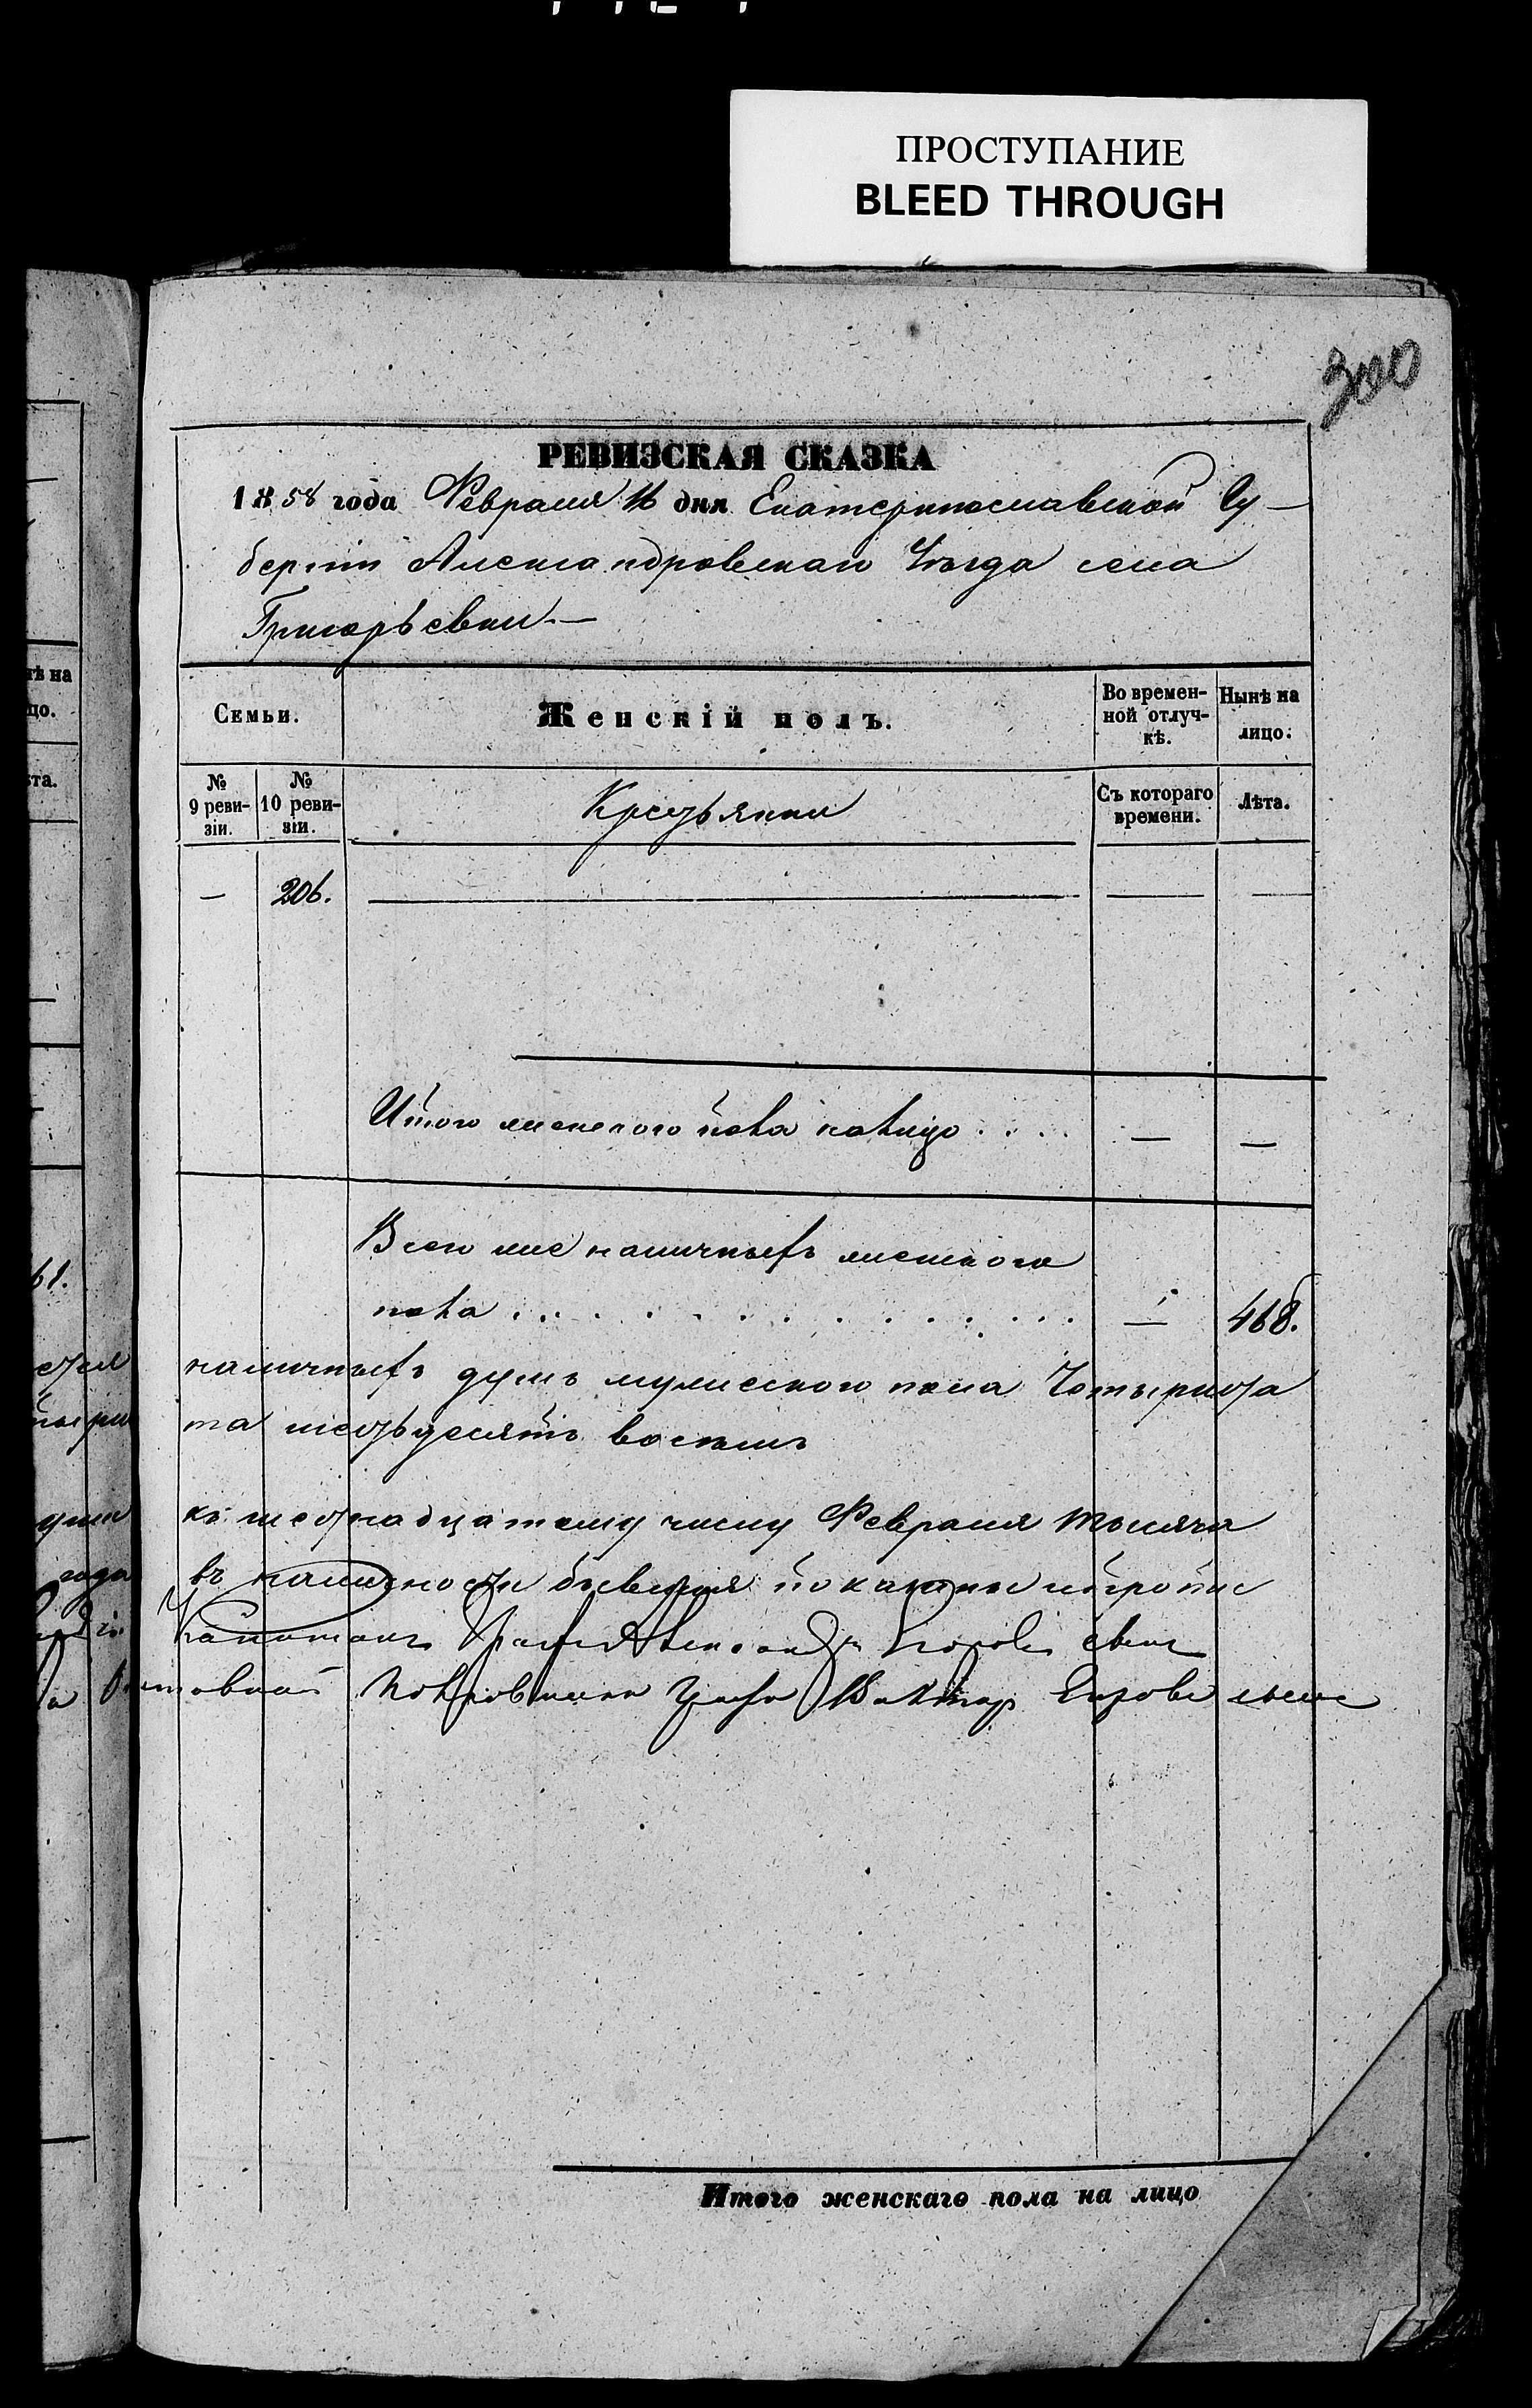 ПРОСТУПАНИЕ
BLEED THROUGH
300
РЕВИЗСКАЯ СКАЗКА
1858 года Февраля 16 дня Екатеринославской Гу-
берніи Александровскаго Уѣзда села
Григорьевки
ѣ на
цо.
Семьи.
Женскій полъ.
Во времен-
ной отлуч-
кѣ.
Нынѣ на
лицо.
та.
№
9 реви-
зіи.
№
10 реви-
зіи.
Крестьянки
Съ котораго
времени.
Лѣта.
—
206.
Итого женского пола налицо . . . . — —
61.
Всего же наличныхъ женского
пола . . . . . . . . . . . . . . — 468.
наличныхъ душъ мужеского пола Четыриста
та шестьдесятъ восемь
къ шестнадцатому числу Февраля тысяча
года въ наличности бывшія показаны
Капитанъ Графъ Александръ
Графъ Викторъ
Итого женскаго пола на лицо